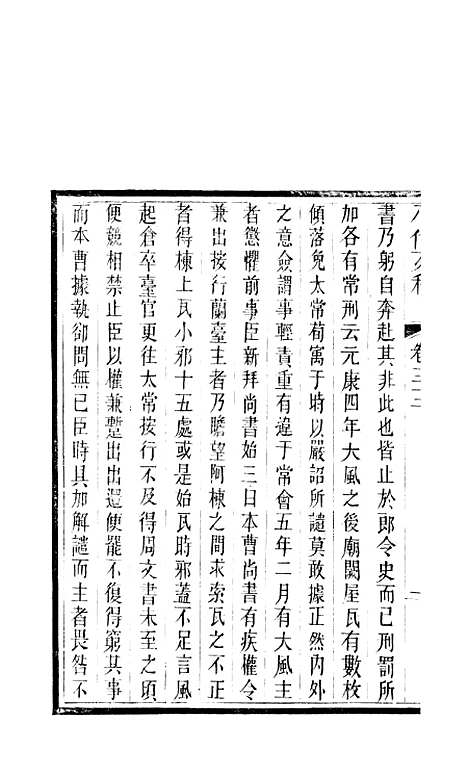 卷三十三
書乃躬自奔赴其非此也皆止於郎令史而已刑罰所
加各有常刑云元康四年大風之後廟闕屋瓦有數枚
傾落免太常荀寓于時以嚴詔所譴莫敢據正然內外
之意僉謂事輕責重有違于常會五年二月有大風主
者懲懼前事臣新拜尚書始三日本曹尚書有疾權令
兼出按行蘭臺主者乃瞻望阿棟之間求索瓦之不正
者得棟上瓦小邪十五處或是始瓦時邪蓋不足言風
起倉卒臺官更往太常按行不及得周文書未至之頃
便競相禁止臣以權兼蹔出出還便罷不復得窮其事
而本曹據執卻問無已臣時具加解譴而主者畏咎不